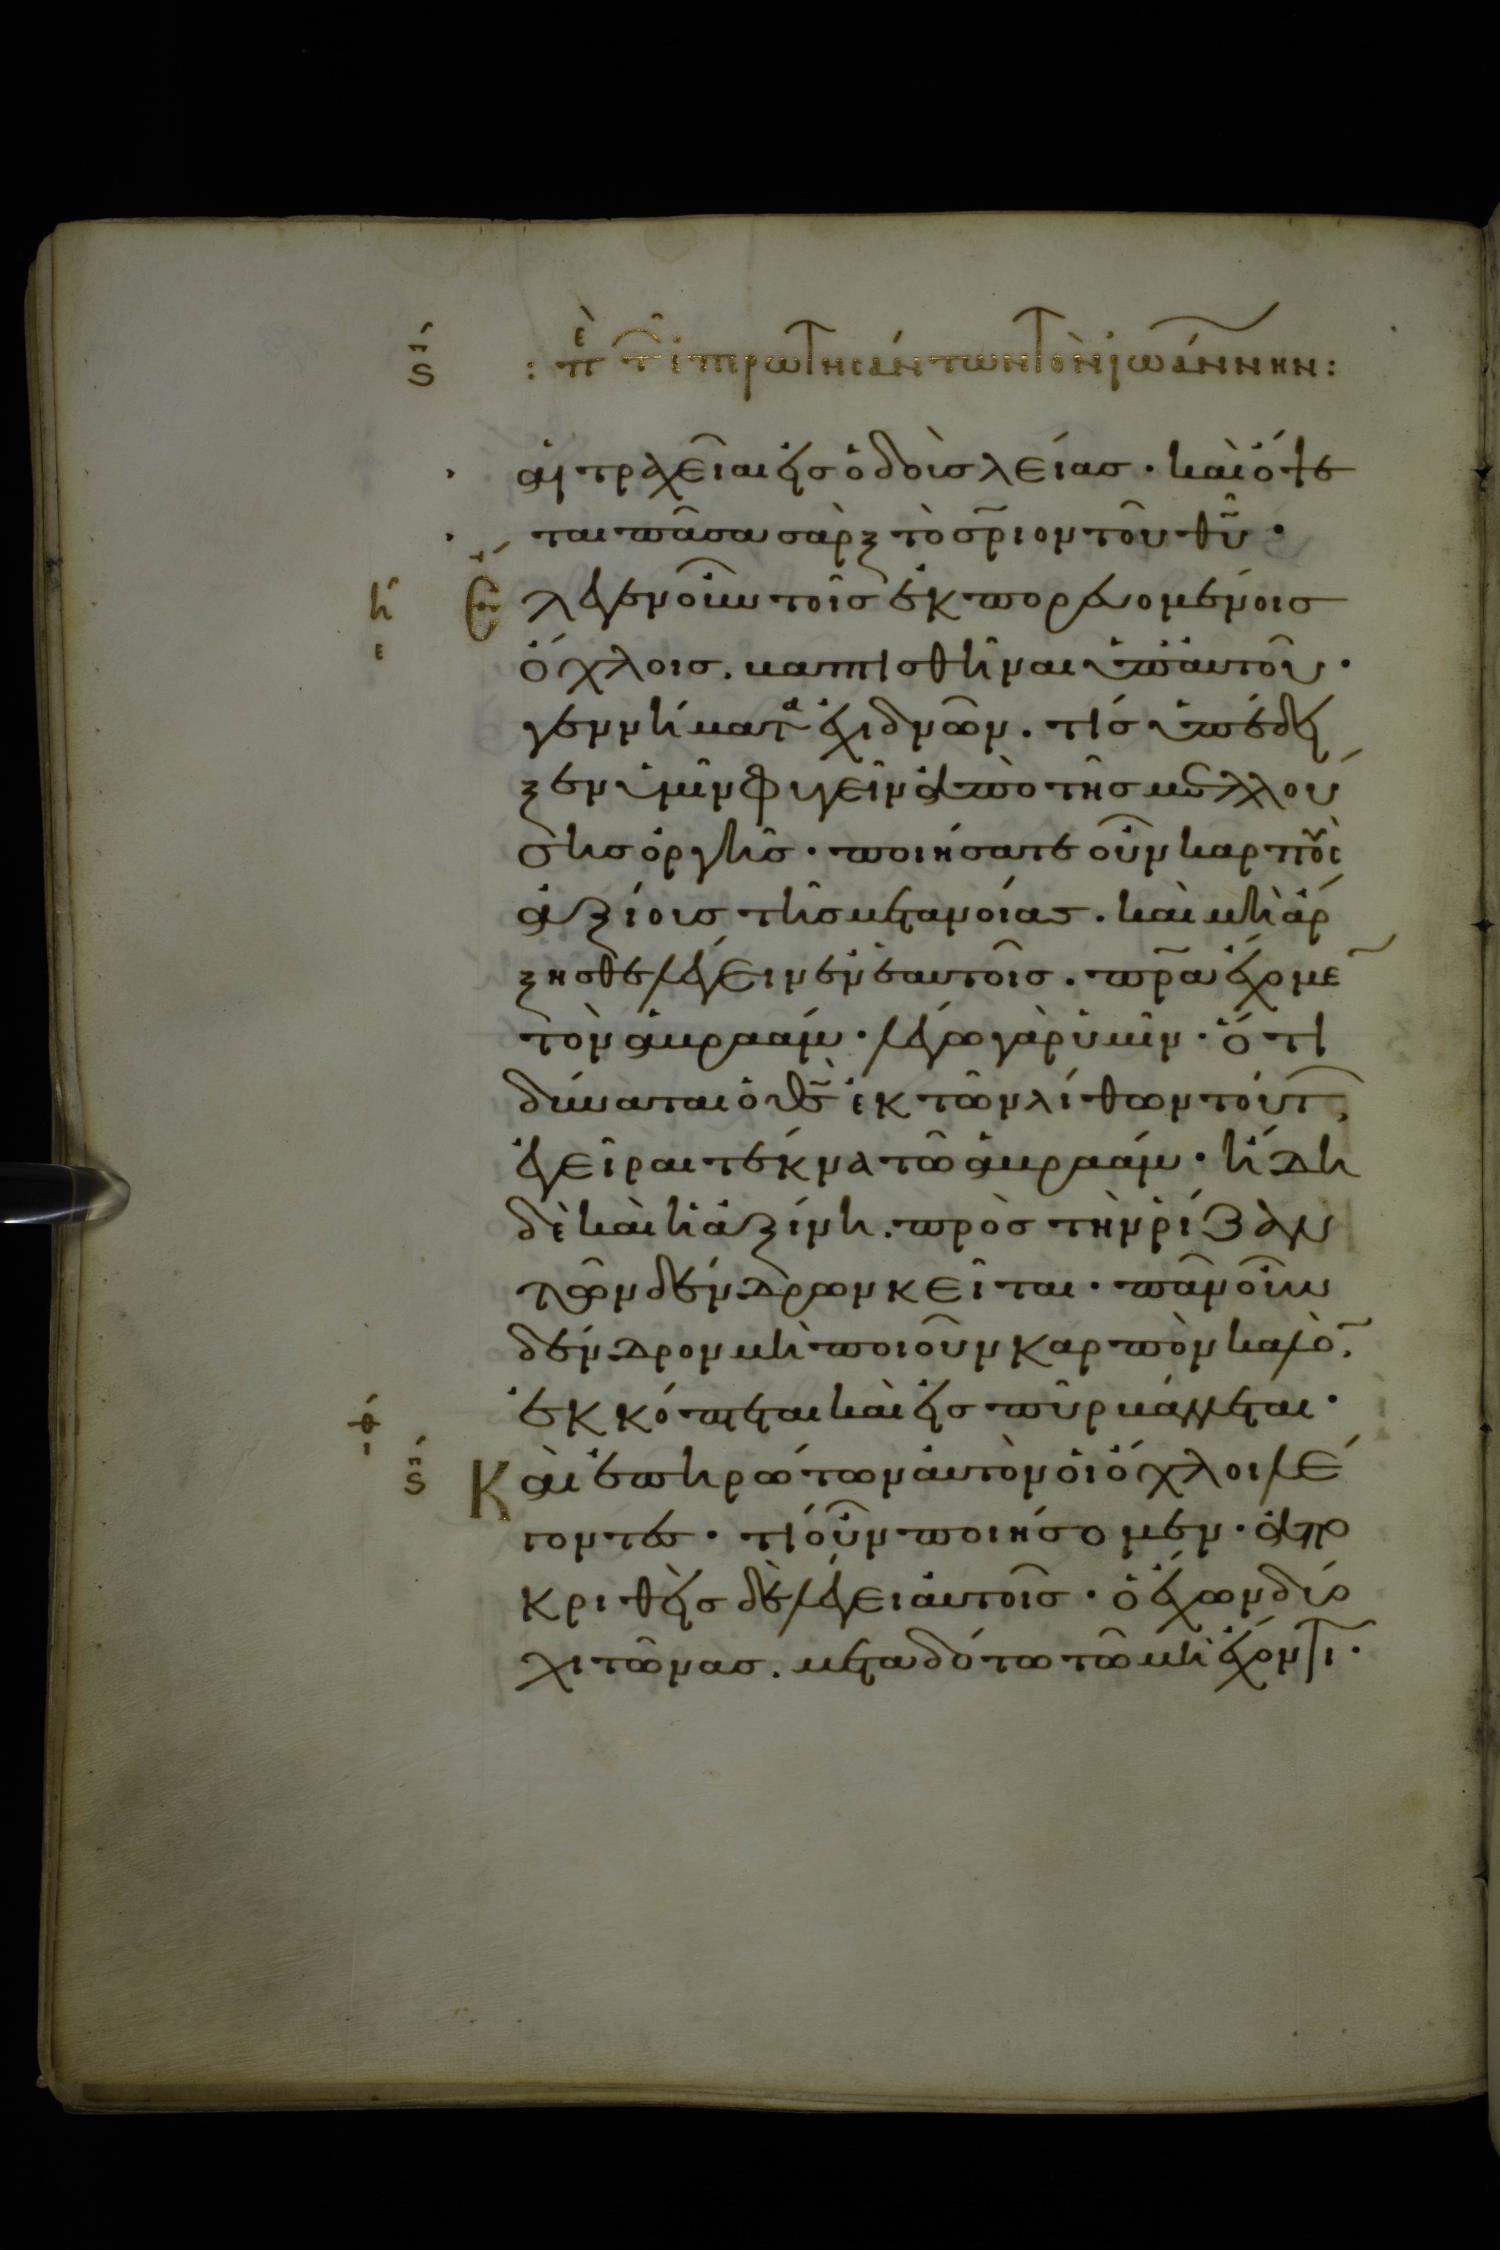 ϛ : πε τ ἐπερωτησάντων τὸν ἰωάννην :
αἱ τραχεῖαι εἰς ὁδοὺς λείας · καὶ ὄψε
ται πᾶσα σὰρξ τὸ σ̅ριον τοῦ θ̅υ ·
Ἔλεγεν οὖν τοῖς ἐκπορευομένοις
ὄχλοις . βαπτισθῆναι ὑπ' αὐτοῦ ·
γεννήματα ἐχιδνῶν . τίς ὑπέδει
ξεν ὑμῖν φυγεῖν ἀπὸ τῆς μελλού
σης ὀργῆς · ποιήσατε οὖν καρποὺς
ἀξίους τῆς μετανοίας . καὶ μὴ ἄρ
ξησθε λέγειν ἐν ἑαυτοῖς . π̅ρα ἔχομε̅
τὸν ἀβραάμ · λέγω γὰρ ὑμῖν · ὅτι
δύναται ὁ θ̅ς ἐκ τῶν λίθων τούτ
ἐγεῖραι τέκνα τῶ ἀβραάμ · ἤδη
δὲ καὶ ἡ ἀξίνη . πρὸς τὴν ῥίζαν
τῶν δένδρων κεῖται · πᾶν οὖν
δένδρον μὴ ποιοῦν καρπὸν καλὸ̅ .
ἐκκόπτεται καὶ εἰς πῦρ βάλλεται ·
ϛ Καὶ ἐπηρώτων αὐτὸν οἱ ὄχλοι λέ
γοντες · τί οὖν ποιήσομεν · ἀπο
κριθεὶς δὲ λέγει αὐτοῖς · ὁ ἔχων δύο
χιτῶνας . μεταδότω τῶ μὴ ἔχοντι ·